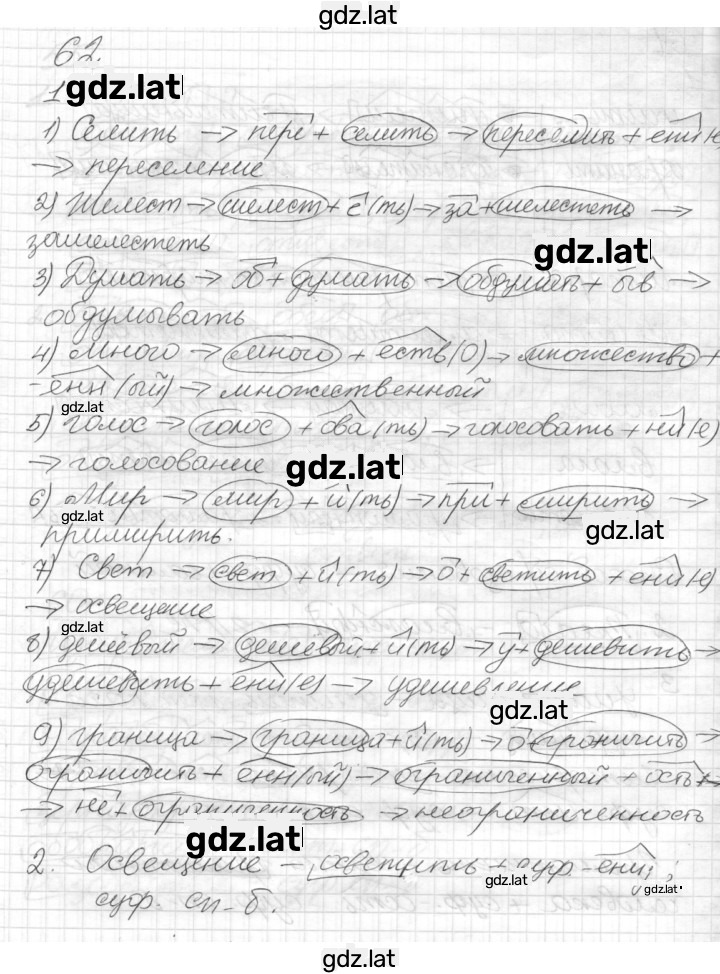 gdz.lat
62.
1 gdz.lat
1) Селить → пере + селить → переселить + ени(е
→ переселение
2) Шелест → шелест + е(ть) → за + шелестеть →
зашелестеть
gdz.lat
3) Думать → об + думать → обдумать + ыв →
обдумывать
4) Много → много + еств(о) → множество +
-енн (ый) → множественный
gdz.lat
5) Голос → голос + ова(ть) → голосовать + ни(е)
→ голосование
gdz.lat
6) Мир → мир + и(ть) → при + мирить →
gdz.lat
примирить.
gdz.lat
7) Свет → свет + и(ть) → о + светить + ени(е)
→ освещение
gdz.lat
8) дешёвый → дешевый + и(ть) → у + дешевить →
удешевить + ени(е) → удешевление
gdz.lat
9) граница → граница + и(ть) → о + граничить →
ограничить + енн(ый) → ограниченный + ость →
→ не + ограниченность → неограниченность
gdz.lat
2. Освещение – осветить + суф. -ени;
gdz.lat
gdz.lat
суф. сп-б.
gdz.lat